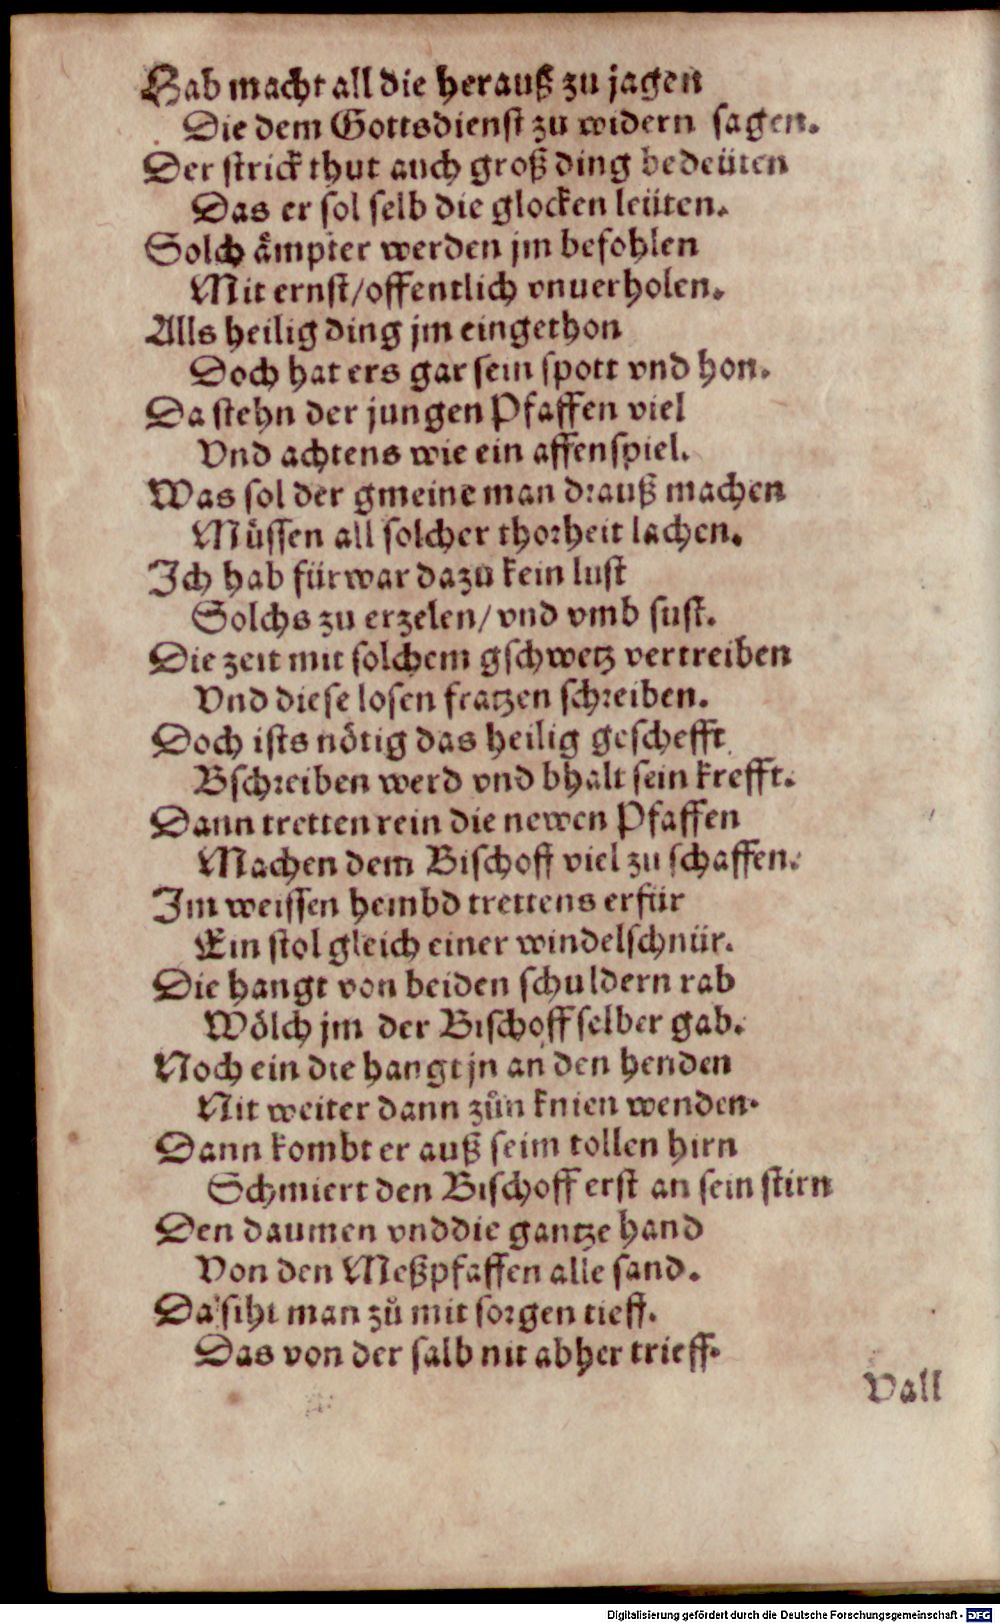 Hab macht all die herauß zu jagen
Die dem Gottsdienst zu widern sagen.
Der strick thut auch groß ding bedeüten
Das er sol selb die glocken leüten.
Solch aͤmpter werden jm befohlen
Mit ernst/offentlich vnuerholen.
Alls heilig ding jm eingethon
Doch hat ers gar sein spott vnd hon.
Da stehn der jungen Pfaffen viel
Vnd achtens wie ein affenspiel.
Was sol der gmeine man drauß machen
Muͤssen all solcher thorheit lachen.
Ich hab fürwar dazu kein lust
Solchs zu erzelen/ vnd vmb sust.
Die zeit mit solchem gschwetz vertreiben
Vnd diese losen fratzen schreiben.
Doch ists noͤtig das heilig geschefft
Bschreiben werd vnd bhalt sein krefft.
Dann tretten rein die newen Pfaffen
Machen dem Bischoff viel zu schaffen.
Im weissen hembd trettens erfür
Ein stol gleich einer windelschnür.
Die hangt von beiden schuldern rab
Woͤlch jm der Bischoff selber gab.
Noch ein die hangt jn an den henden
Nit weiter dann zůn knien wenden.
Dann kombt er auß seim tollen hirn
Schmiert den Bischoff erst an sein stirn
Den daumen vnd die gantze hand
Von den Meßpfaffen alle sand.
Da siht man zů mit sorgen tieff.
Das von der salb nit abher trieff.
Vall
Digitalisierung gefördert durch die Deutsche Forschungsgemeinschaft - DFG